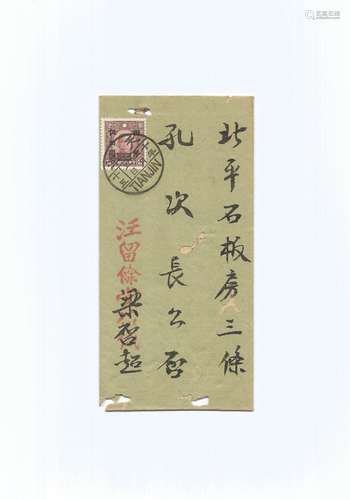 北平石板房三條
孔次長公啓
汪留條
梁啓超
TIANJIN